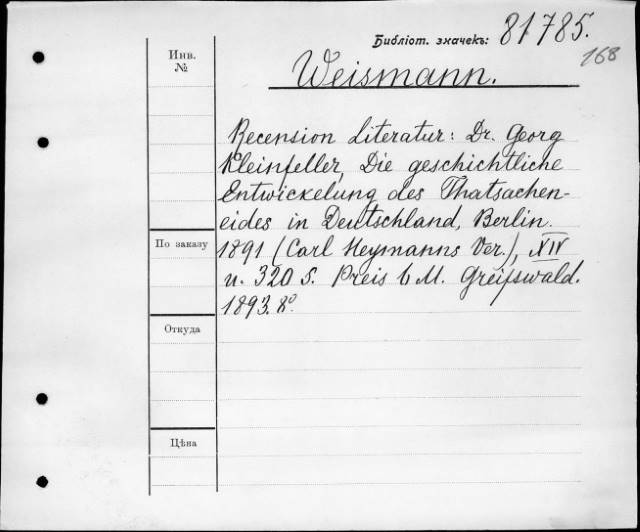 Библіот. значекъ: 81785.
168
Инв.
№
Weismann.
Recension Literatur: Dr. Georg
Kleinfeller, Die geschichtliche
Entwickelung des Thatsachen-
eides in Deutschland, Berlin.
1891 (Carl Heymanns Ver.), XIV
u. 320 S. Preis 6 M. Greifswald.
1893. 8º.
По заказу
Откуда
Цѣна